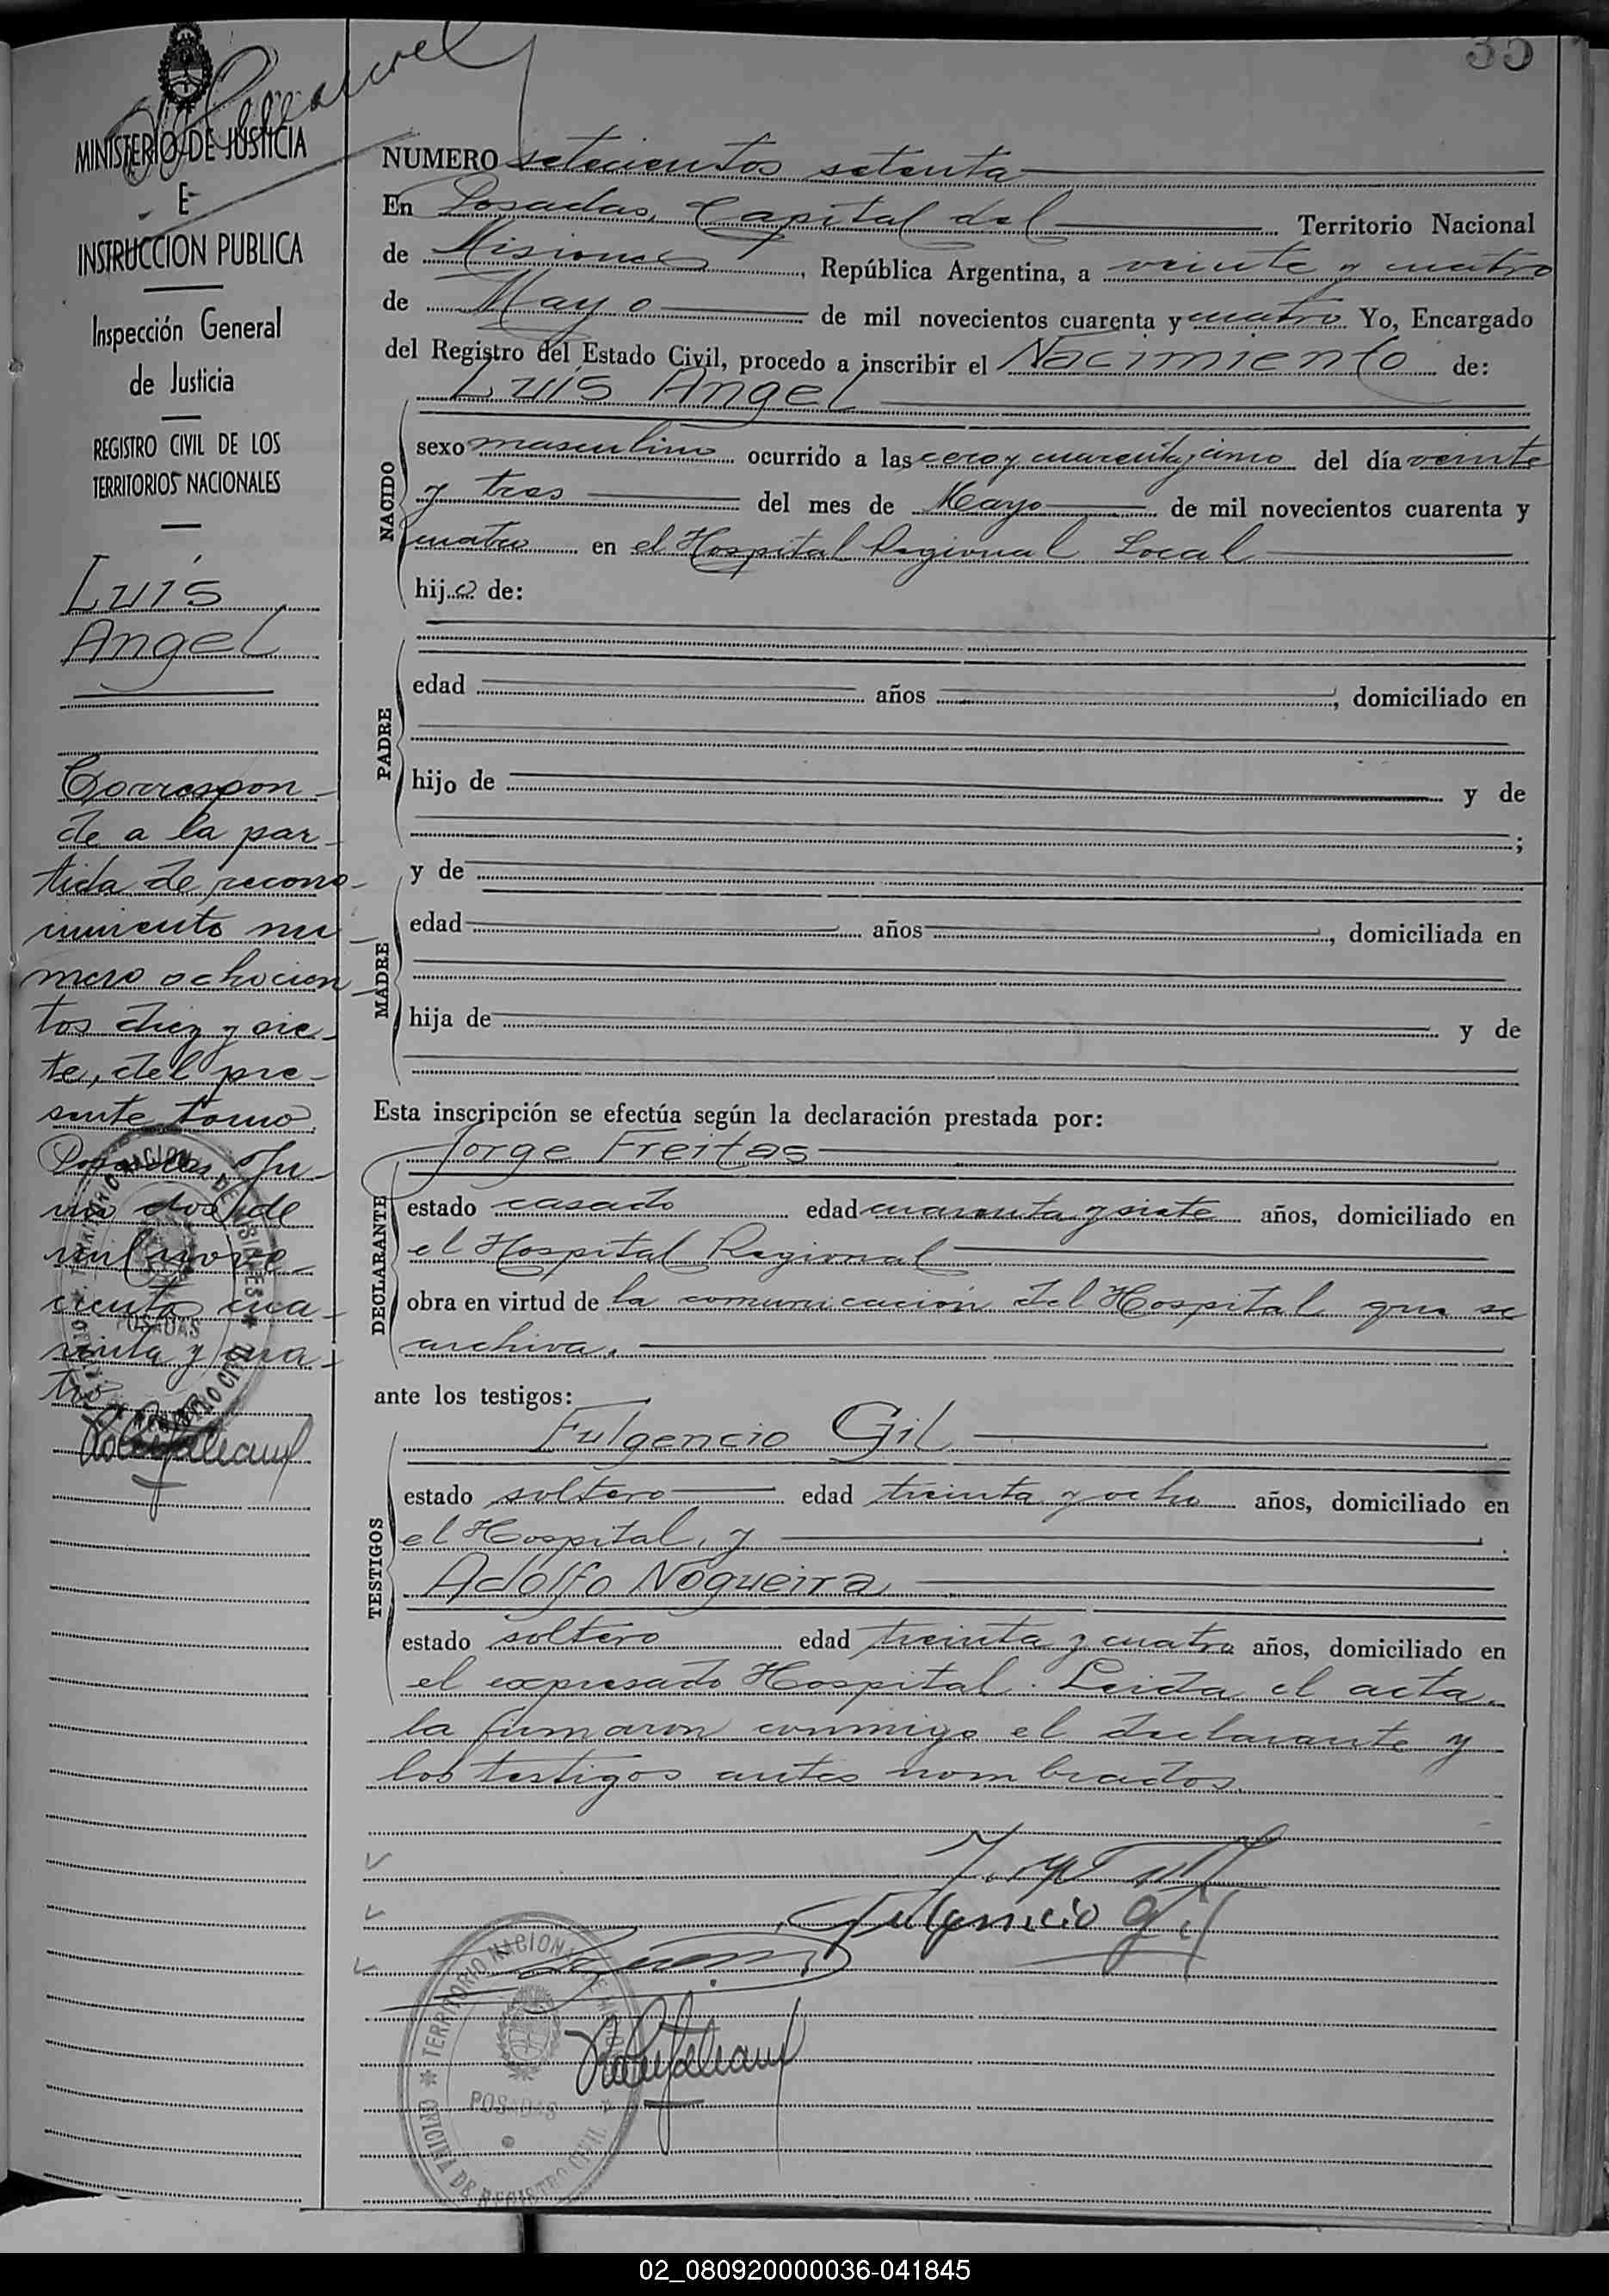 35
MINISTERIO DE JUSTICIA
E
INSTRUCCION PUBLICA
Inspección General
de Justicia
REGISTRO CIVIL DE LOS
TERRITORIOS NACIONALES
Luis
Angel
Correspon-
de a la par-
tida de recono-
cimiento nu-
mero ochocien-
tos diez y sie-
te, del pre-
sente tomo
Posadas, Ju-
nio dos de
mil nove-
cientos cua-
renta y cua-
tro
NUMERO setecientos setenta
En Posadas, Capital del Territorio Nacional
de Misiones, República Argentina, a veinte y cuatro
de Mayo de mil novecientos cuarenta y cuatro Yo, Encargado
del Registro del Estado Civil, procedo a inscribir el Nacimiento de:
Luis Angel
NACIDO
sexo masculino ocurrido a las cero y cuarenta y cinco del día veinte
y tres del mes de Mayo de mil novecientos cuarenta y
cuatro en el Hospital Regional Local
hijo de:
PADRE
edad años, domiciliado en
hijo de y de
;
MADRE
y de
edad años, domiciliada en
hija de y de
Esta inscripción se efectúa según la declaración prestada por:
Jorge Freitas
DECLARANTE
estado casado edad cuarenta y siete años, domiciliado en
el Hospital Regional
obra en virtud de la comunicación del Hospital que se
archiva.
ante los testigos:
Fulgencio Gil
TESTIGOS
estado soltero edad treinta y ocho años, domiciliado en
el Hospital, y
Adolfo Nogueira
estado soltero edad treinta y cuatro años, domiciliado en
el expresado Hospital. Leida el acta
la firmaron conmigo el declarante y
los testigos antes nombrados.
Fulgencio Gil
TERRITORIO NACIONAL DE MISIONES
POSADAS
OFICINA DE REGISTRO CIVIL
02_080920000036-041845